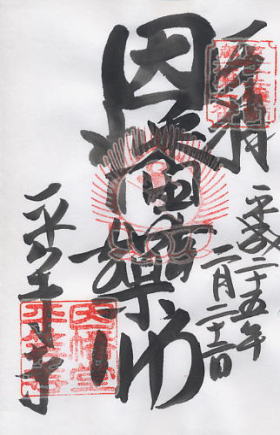 奉拝
平成二十五年
二月二十三日
因幡堂薬師
平等寺
因幡堂
平等寺